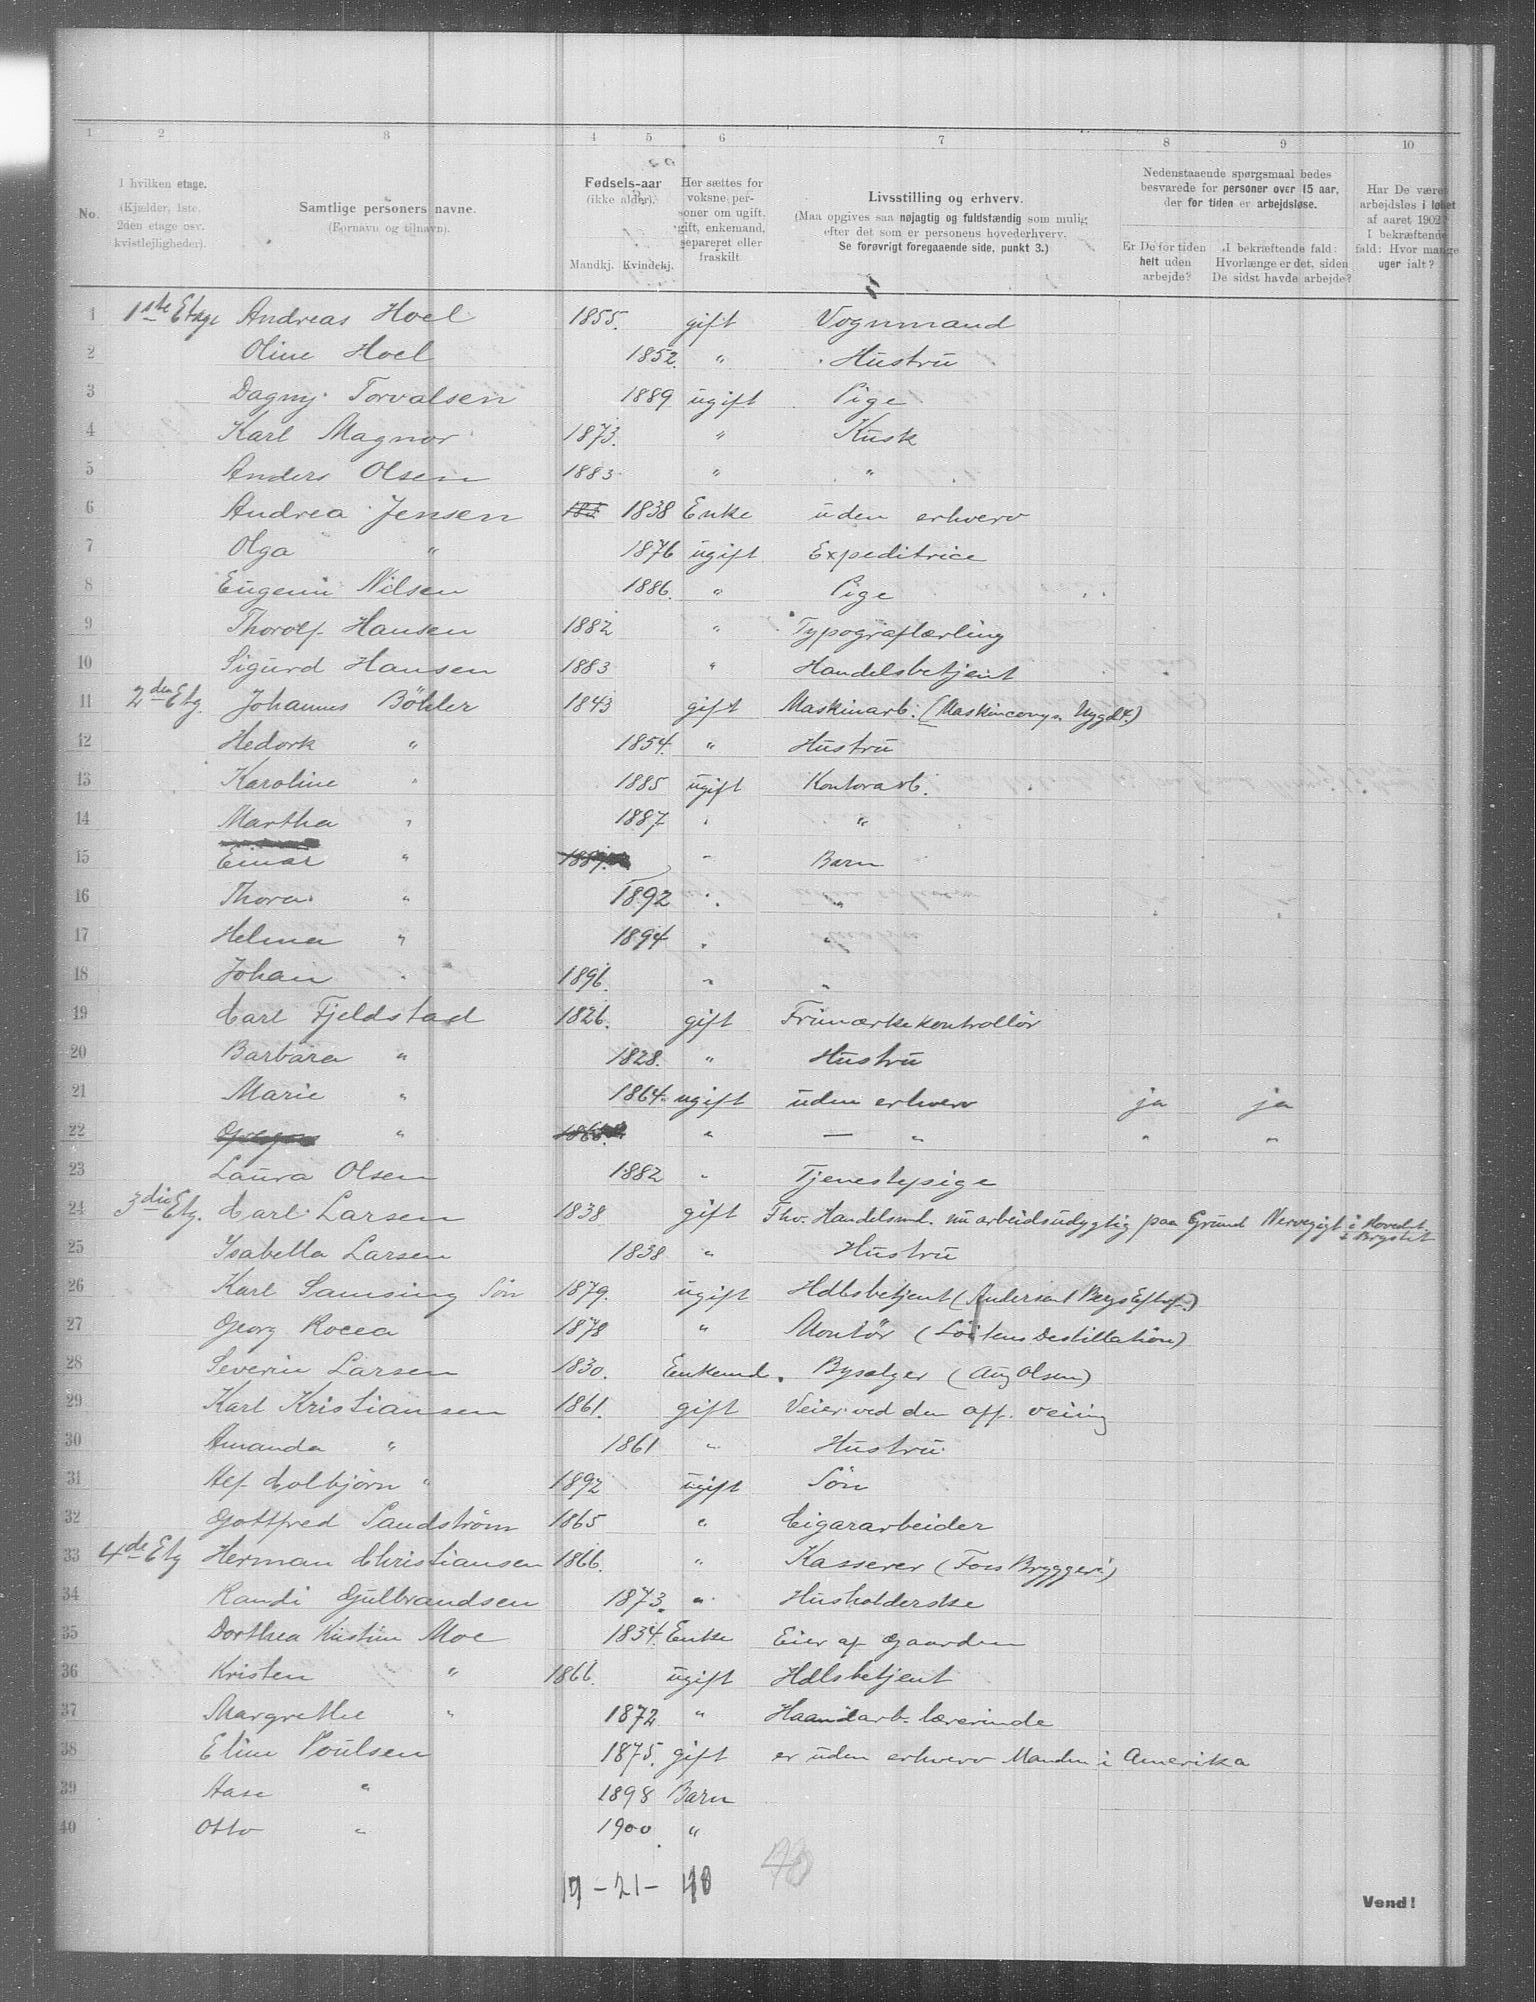 1 2 3 4 5 6 7 8 9 10
No.
I hvilken etage. (Kjælder, 1ste, 2den etage osv. kvistlejligheder).
Samtlige personers navne. (Fornavn og tilnavn).
Fødsels-aar (ikke alder). Mandkj. Kvindekj.
Her sættes for voksne personer om ugift, gift, enkemand, separeret eller fraskilt.
Livsstilling og erhverv. (Maa opgives saa nøjagtig og fuldstændig som mulig efter det som er personens hovederhverv. Se forøvrigt foregaaende side, punkt 3.)
Nedenstaaende spørgsmaal bedes besvarede for personer over 15 aar, der for tiden er arbejdsløse.
Er De for tiden helt uden arbejde?
I bekræftende fald: Hvorlænge er det, siden De sidst havde arbejde?
Har De været arbejdsløs i løbet af aaret 1902? I bekræftende fald: Hvor mange uger ialt?
1 1ste Etage Andreas Hoel 1855. gift Vognmand
2 Oline Hoel 1852. " Hustru
3 Dagny Torvalsen 1889 ugift Pige
4 Karl Magnor 1873. " Kusk
5 Anders Olsen 1883 " "
6 Andrea Jensen 1838 Enke uden erhverv
7 Olga " 1876 ugift Expeditrice
8 Eugeni Nilsen 1886. " Pige
9 Thorolf Hansen 1882 " Typograflærling
10 Sigurd Hansen 1883 " Handelsbetjent
11 2den Etg. Johannes Böhler 1843 gift Maskinarb.
12 " 1854. " Hustru
13 Karoline " 1885 ugift Kontorarb.
14 Martha " 1887 " "
15 Einar " 1889 " Barn
16 Thora " 1892 " "
17 Helma " 1894 " "
18 Johan " 1896. " "
19 Carl Fjeldstad 1826. gift Frimærkekontrollör
20 Barbara " 1828. " Hustru
21 Marie " 1864. ugift uden erhverv ja ja
22 " " — " " "
23 Laura Olsen 1882 " Tjenestepige
24 3die Etg. Carl Larsen 1838 gift Fhv. Handelsmd. nu arbeidsudygtig paa Grund Nervegigt i Hovedet i Brystet
25 Isabella Larsen 1838 " Hustru
26 Karl Samsing Sön 1879. ugift Hdlsbetjent
27 Georg Rocca 1878 " Montör (Löitens Destillation)
28 Severin Larsen 1830. Enkemd. Bysælger (Aug Olsen)
29 Karl Kristiansen 1861. gift Veier ved den off. veiing
30 Amanda " 1861 " Hustru
31 Alf Colbjörn " 1892 ugift Sön
32 Gottfred Sandström 1865 " Cigararbeider
33 4de Etg Herman Christiansen 1866. " Kasserer (Foss Bryggeri)
34 Randi Gulbrandsen 1873. " Husholderske
35 Dorthea Kristine Moe 1834. Enke Eier af Gaarden
36 Kristen " 1866. ugift Hdlsbetjent
37 Margrethe " 1872 " Haandarb. lærerinde
38 Eline Poulsen 1875. gift er uden erhverv Manden i Amerika
39 Aase " 1898 Barn
40 Otto " 1900 "
19 - 21 - 40 40
Vend!